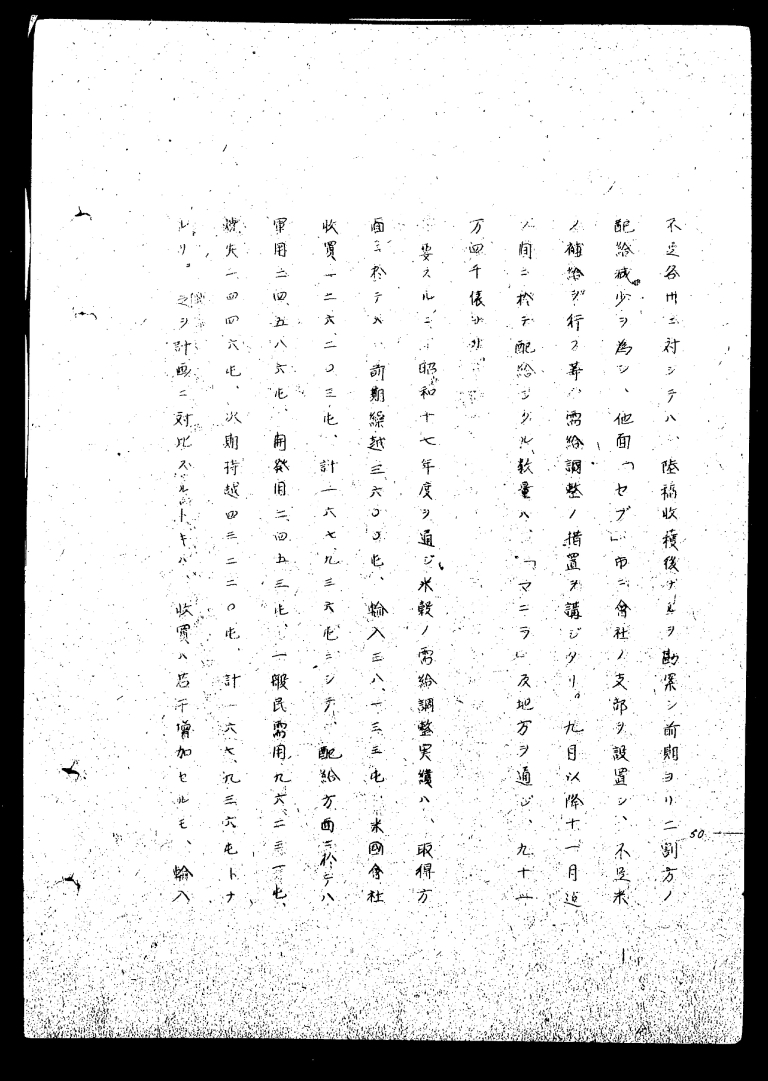 不足各州ニ対シテハ、陸稲收穫後ナルヲ勘案シ前期ヨリ二割方ノ
配給減少ヲ為シ、他面「セブ」市ニ會社ノ支部ヲ設置シ、不足米
ノ補給ヲ行フ等、需給調整ノ措置ヲ講ジタリ。九月以降十一月迄
ノ間ニ於テ配給シタル数量ハ、「マニラ」及地方ヲ通ジ、九十一
万四千俵ナリ。
要スルニ、昭和十七年度ヲ通ジ米穀ノ需給調整実績ハ、取得方
面ニ於テハ、前期繰越三六〇〇屯、輸入三八、一三三屯、米國會社
收買一二六、二〇三屯、計一六七、九三六屯ニシテ、配給方面ニ於テハ
軍用二四、五八六屯、開発用二四五三屯、一般民需用九六、二三一屯、
焼失一四四六屯、次期持越四三二二〇屯、計一六七、九三六屯トナ
ルリ。之ヲ計画ニ対比スルトキハ、收買ハ若干増加セルモ、輸入
50